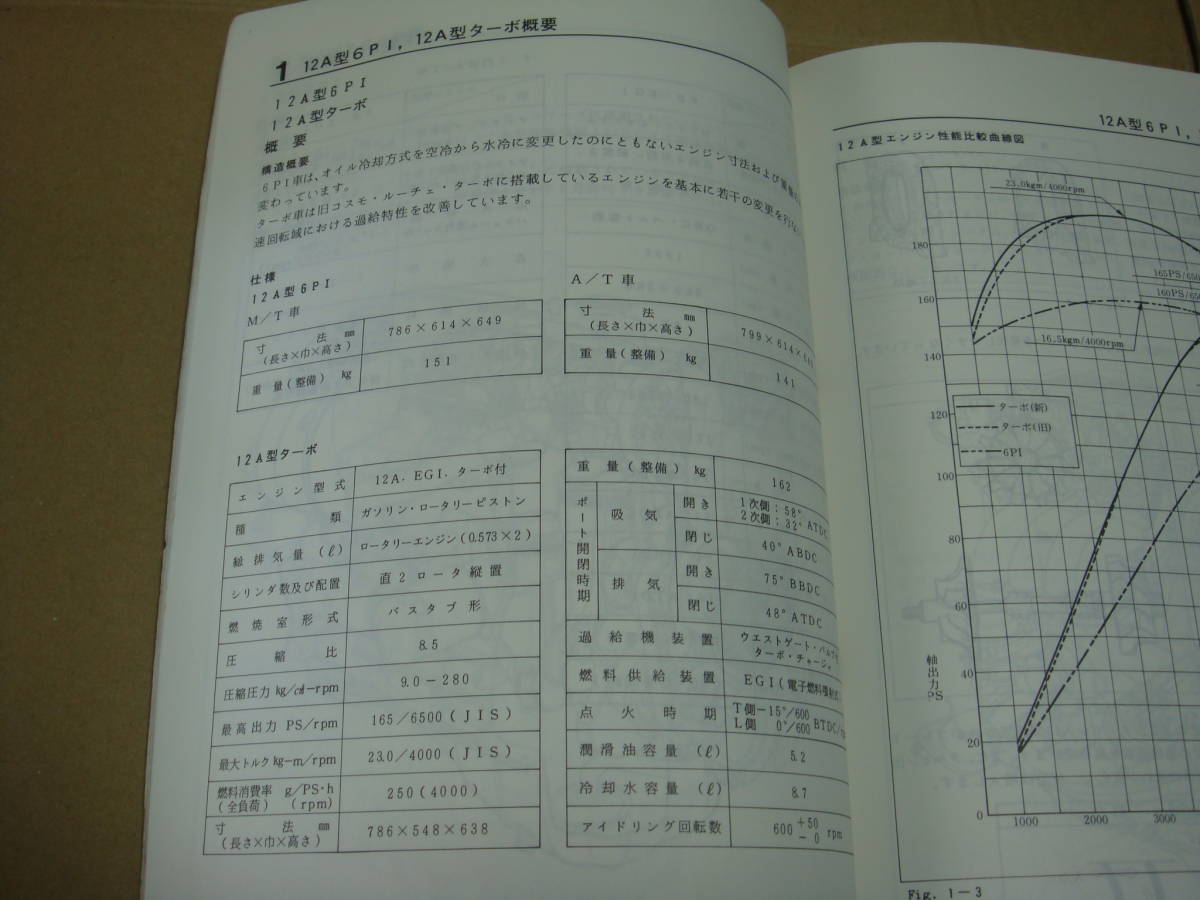 1 12A型6PI, 12A型ターボ概要
12A型6PI
12A型ターボ
概要
構造概要
6PI車は、オイル冷却方式を空冷から水冷に変更したのにともないエンジン寸法および重量が
変わっています。
ターボ車は旧コスモ・ルーチェ・ターボに搭載しているエンジンを基本に若干の変更を行ない
速回転域における過給特性を改善しています。
仕様
12A型6PI
M/T車
寸法 ㎜ (長さ×巾×高さ) 786×614×649
重量(整備) kg 151
A/T車
寸法 ㎜ (長さ×巾×高さ) 799×614×6
重量(整備) kg 141
12A型ターボ
エンジン型式 12A. EGI. ターボ付
種類 ガソリン・ロータリーピストン
総排気量(ℓ) ロータリーエンジン(0.573×2)
シリンダ数及び配置 直2ロータ縦置
燃焼室形式 バスタブ形
圧縮比 8.5
圧縮圧力 kg/c㎡-rpm 9.0-280
最高出力 PS/rpm 165/6500(JIS)
最大トルク kg-m/rpm 23.0/4000(JIS)
燃料消費率 g/PS・h (全負荷) (rpm) 250(4000)
寸法 ㎜ (長さ×巾×高さ) 786×548×638
重量(整備) kg 162
ポート開閉時期
吸気 開き 1次側:58° 2次側:32° ATDC
閉じ 40°ABDC
排気 開き 75°BBDC
閉じ 48°ATDC
過給機装置 ウエストゲート・バルブ
ターボ・チャージャ
燃料供給装置 EGI(電子燃料噴射
点火時期 T側-15°/600 L側 0°/600 BTDC/
潤滑油容量(ℓ) 5.2
冷却水容量(ℓ) 8.7
アイドリング回転数 600 +50 -0 rpm
12A型6PI,
12A型エンジン性能比較曲線図
23.0kgm/4000rpm
165PS/650
160PS/650
16.5kgm/4000rpm
ターボ(新)
ターボ(旧)
6PI
180
160
140
120
100
80
60
40
20
0
軸出力
PS
1000 2000 3000
Fig. 1-3